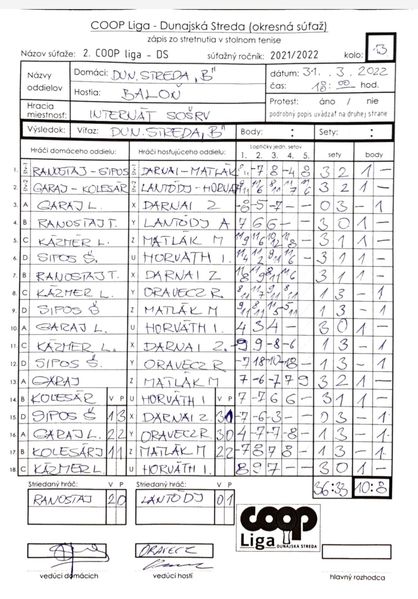 COOP Liga - Dunajská Streda (okresná súťaž)
zápis zo stretnutia v stolnom tenise
Názov súťaže: 2. COOP liga - DS súťažný ročník: 2021/2022 kolo: 13
Názvy oddielov Domáci: DUN. STREDA „B" dátum: 31. 3. 2022
Hostia: BALOŇ čas: 18 00 hod.
Hracia miestnosť: INTERNÁT SOŠRV Protest: áno / nie
podrobný popis uvádzať na druhej strane
Výsledok: Víťaz: DUN. STREDA „B" Body: : Sety: :
Hráči domáceho oddielu: Hráči hosťujúceho oddielu: Loptičky jedn. setov: 1. 2. 3. 4. 5. sety body
RANOSTAJ - SIPOS DARNAI - MATLÁK 3 2 1 -
GARAJ - KOLESÁR LANTÓDJ - HORVÁTH 3 2 1 -
3. A GARAJ L. X DARNAI Z -8 -5 -7 - - 0 3 - 1
4. B RANOSTAJ T. Y LANTÓDJ A 7 6 6 - - 3 0 1 -
5. C KÁZMER L. Z MATLÁK M 3 1 1 -
6. D SIPOS Š. U HORVÁTH I. 3 1 1 -
7. B RANOSTAJ T. X DARNAI Z 3 1 1 -
8. C KÁZMER L. Y ORAVECZ R 1 3 - 1
9. D SIPOS Š Z MATLÁK M 1 3 - 1
10. A GARAJ L. U HORVÁTH I. 4 3 4 - - 3 0 1 -
11. C KÁZMER L. X DARNAI Z. -9 9 -8 -6 1 3 - 1
12. D SIPOS Š. Y ORAVECZ R 1 3 - 1
13. A GARAJ Z MATLÁK M 7 -6 -7 7 9 3 2 1 -
14. B KOLESÁR V P U HORVÁTH I. V P 7 -7 6 6 3 1 1 -
15. D SIPOS Š 1 3 X DARNAI Z 3 1 -7 -6 -3 - 0 3 - 1
16. A GARAJ L. 2 2 Y ORAVECZ R 3 0 -4 7 -7 -8 1 3 - 1
17. B KOLESÁR J 1 1 Z MATLÁK M 2 2 -7 8 7 8 1 3 - 1
18. C KÁZMER L U HORVÁTH I. 8 9 7 - - 3 0 1 -
Striedaný hráč: V P Striedaný hráč: V P 36:33 10:8
RANOSTAJ 2 0 LANTÓDJ 0 1
coop
Liga DUNAJSKÁ STREDA
vedúci domácich vedúci hostí hlavný rozhodca